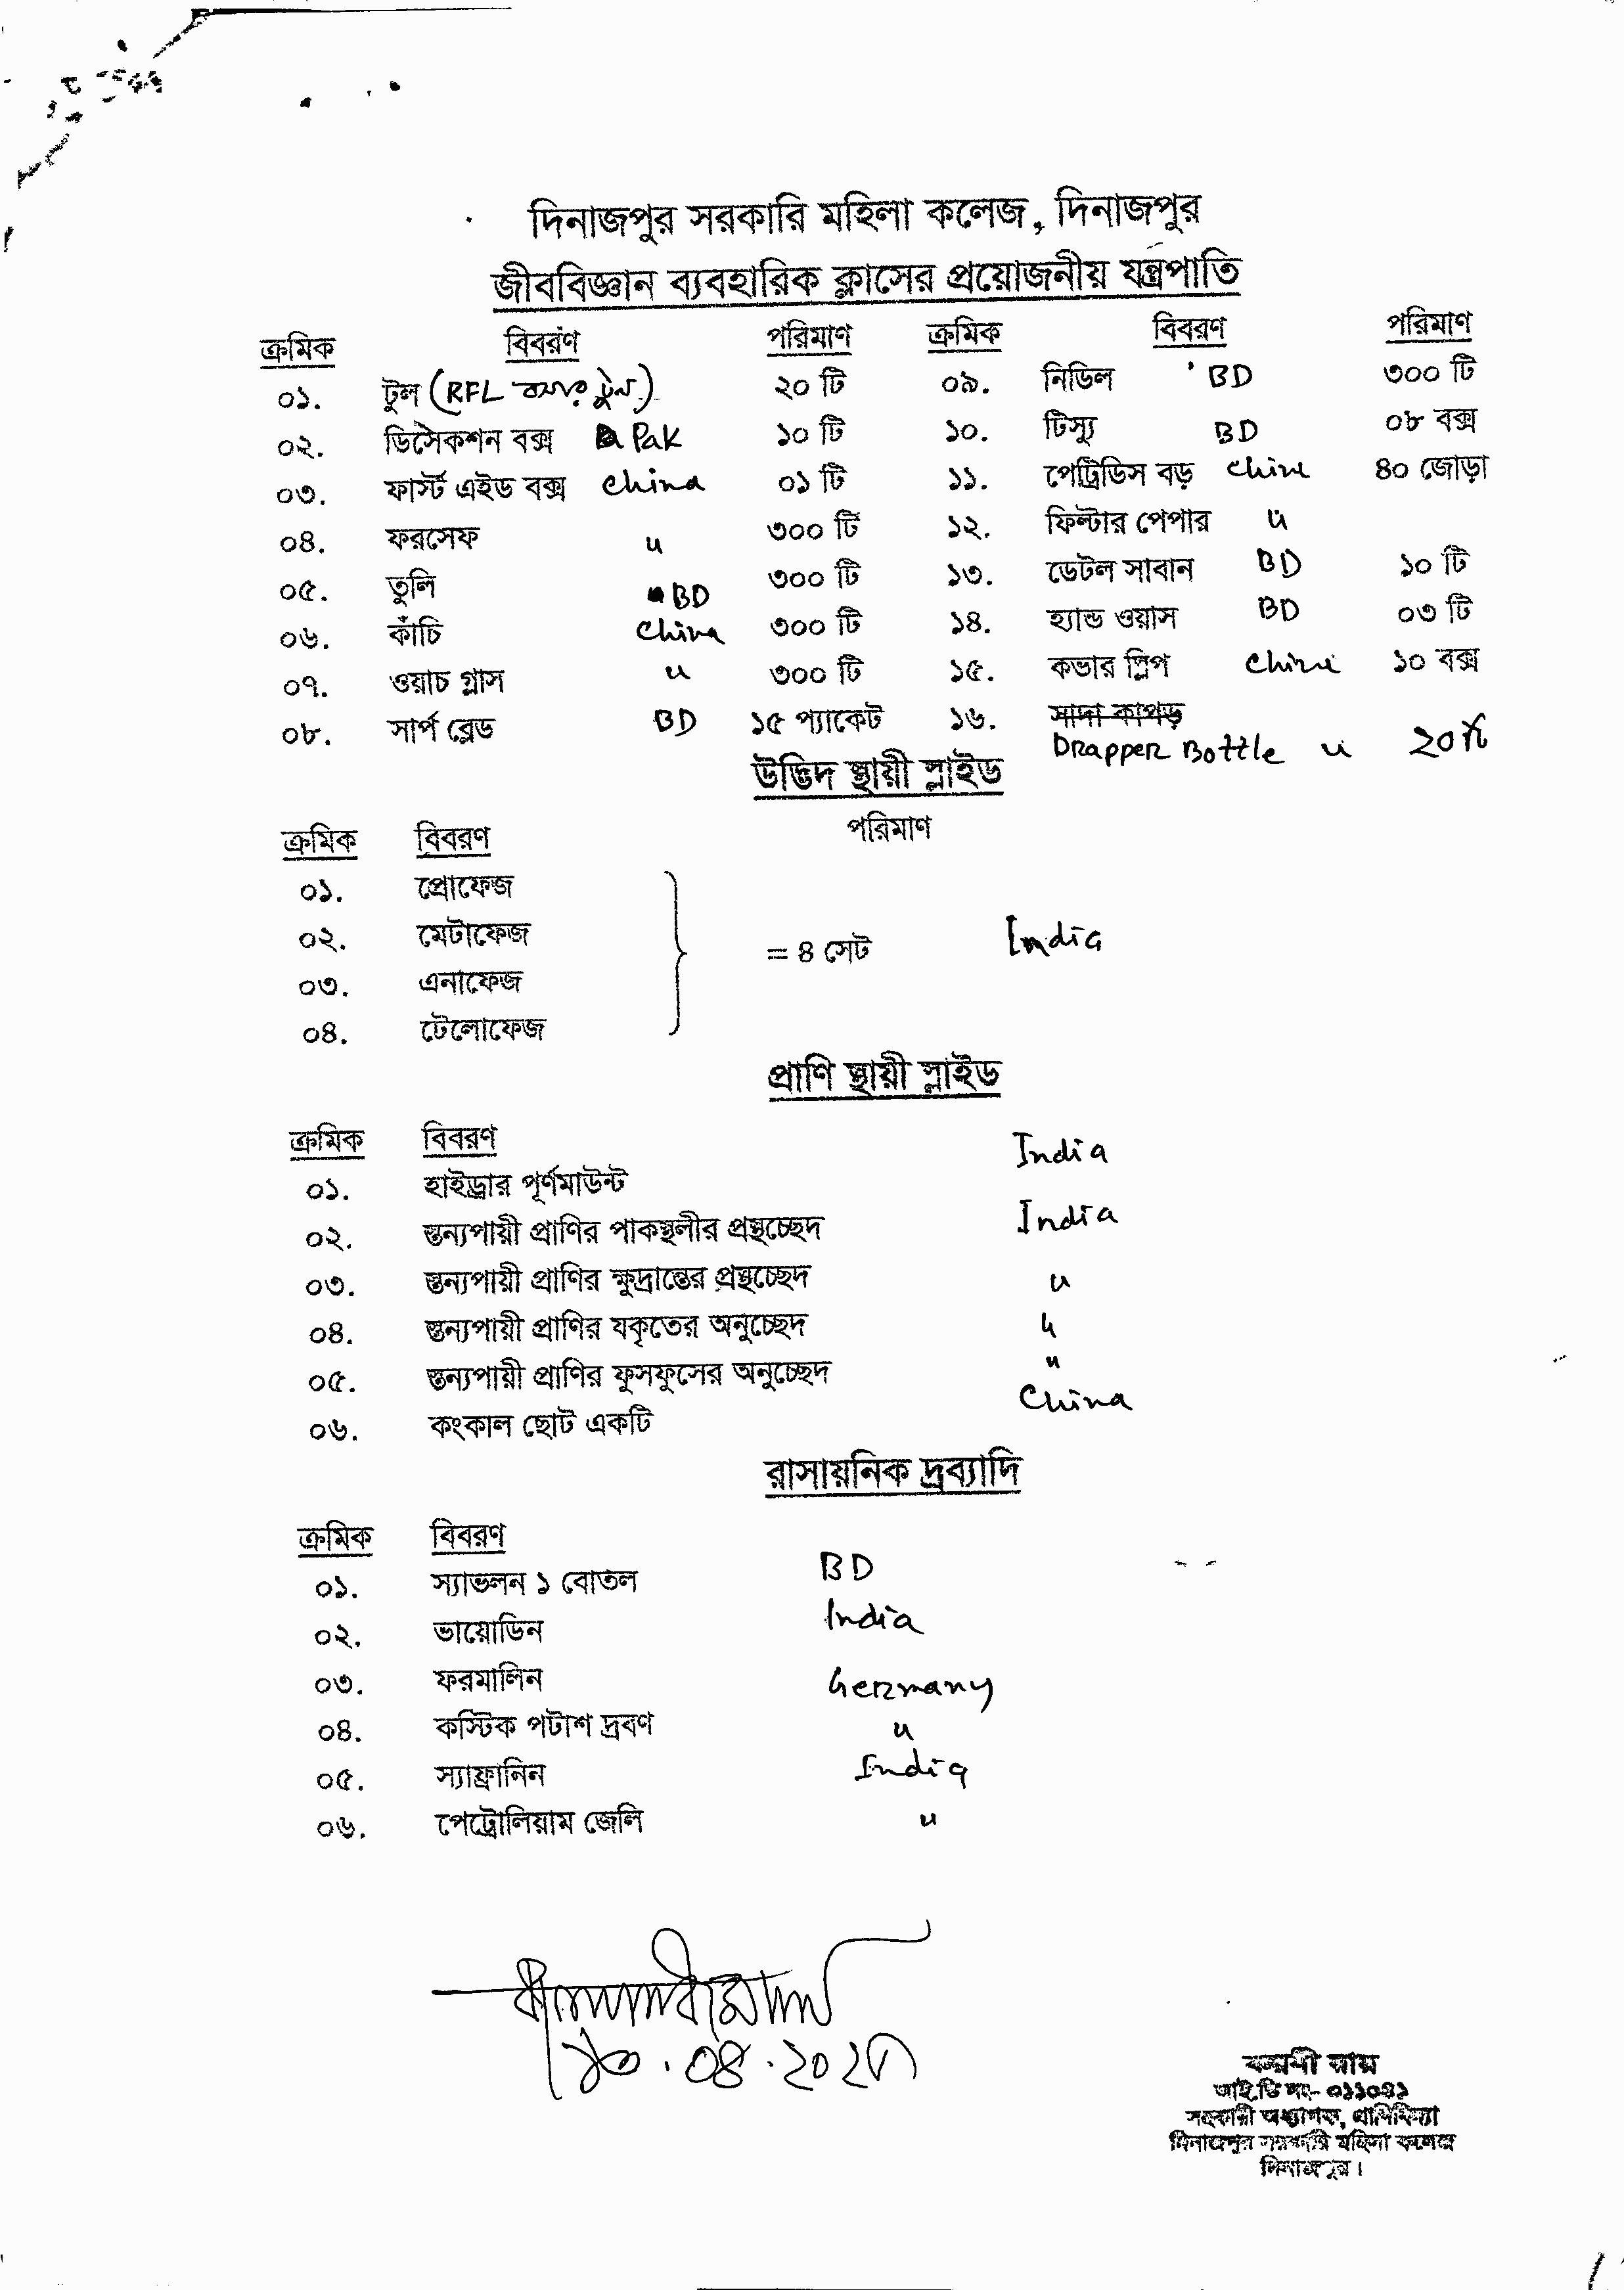 দিনাজপুর সরকারি মহিলা কলেজ, দিনাজপুর
জীববিজ্ঞান ব্যবহারিক ক্লাসের প্রয়োজনীয় যন্ত্রপাতি
ক্রমিক বিবরণ পরিমাণ ক্রমিক বিবরণ পরিমাণ
০১. টুল (RFL বসার টুল) ২০ টি ০৯. নিডিল BD ৩০০ টি
০২. ডিসৈকশন বক্স Pak ১০ টি ১০. টিস্যু BD ০৮ বক্স
০৩. ফার্স্ট এইড বক্স China ০১ টি ১১. পেট্রিডিস বড় China ৪০ জোড়া
০৪. ফরসেফ " ৩০০ টি ১২. ফিল্টার পেপার "
০৫. তুলি BD ৩০০ টি ১৩. ডেটল সাবান BD ১০ টি
০৬. কাঁচি China ৩০০ টি ১৪. হ্যান্ড ওয়াস BD ০৩ টি
০৭. ওয়াচ গ্লাস " ৩০০ টি ১৫. কভার স্লিপ China ১০ বক্স
০৮. সার্প ব্লেড BD ১৫ প্যাকেট ১৬. সাদা কাপড়
Drapper Bottle " ২০টি
উদ্ভিদ স্থায়ী স্লাইড
ক্রমিক বিবরণ পরিমাণ
০১. প্রোফেজ
০২. মেটাফেজ
= ৪ সেট India
০৩. এনাফেজ
০৪. টেলোফেজ
প্রাণি স্থায়ী স্লাইড
ক্রমিক বিবরণ
০১. হাইড্রার পূর্ণমাউন্ট India
০২. স্তন্যপায়ী প্রাণির পাকস্থলীর প্রস্থচ্ছেদ India
০৩. স্তন্যপায়ী প্রাণির ক্ষুদ্রান্তের প্রস্থচ্ছেদ "
০৪. স্তন্যপায়ী প্রাণির যকৃতের অনুচ্ছেদ "
০৫. স্তন্যপায়ী প্রাণির ফুসফুসের অনুচ্ছেদ "
০৬. কংকাল ছোট একটি China
রাসায়নিক দ্রব্যাদি
ক্রমিক বিবরণ
০১. স্যাভলন ১ বোতল BD
০২. ভায়োডিন India
০৩. ফরমালিন Germany
০৪. কস্টিক পটাশ দ্রবণ "
০৫. স্যাফ্রানিন India
০৬. পেট্রোলিয়াম জেলি "
রায়
আই.ডি নং-
সহকারী অধ্যাপক, প্রাণিবিদ্যা
দিনাজপুর সরকারি মহিলা কলেজ
দিনাজপুর।